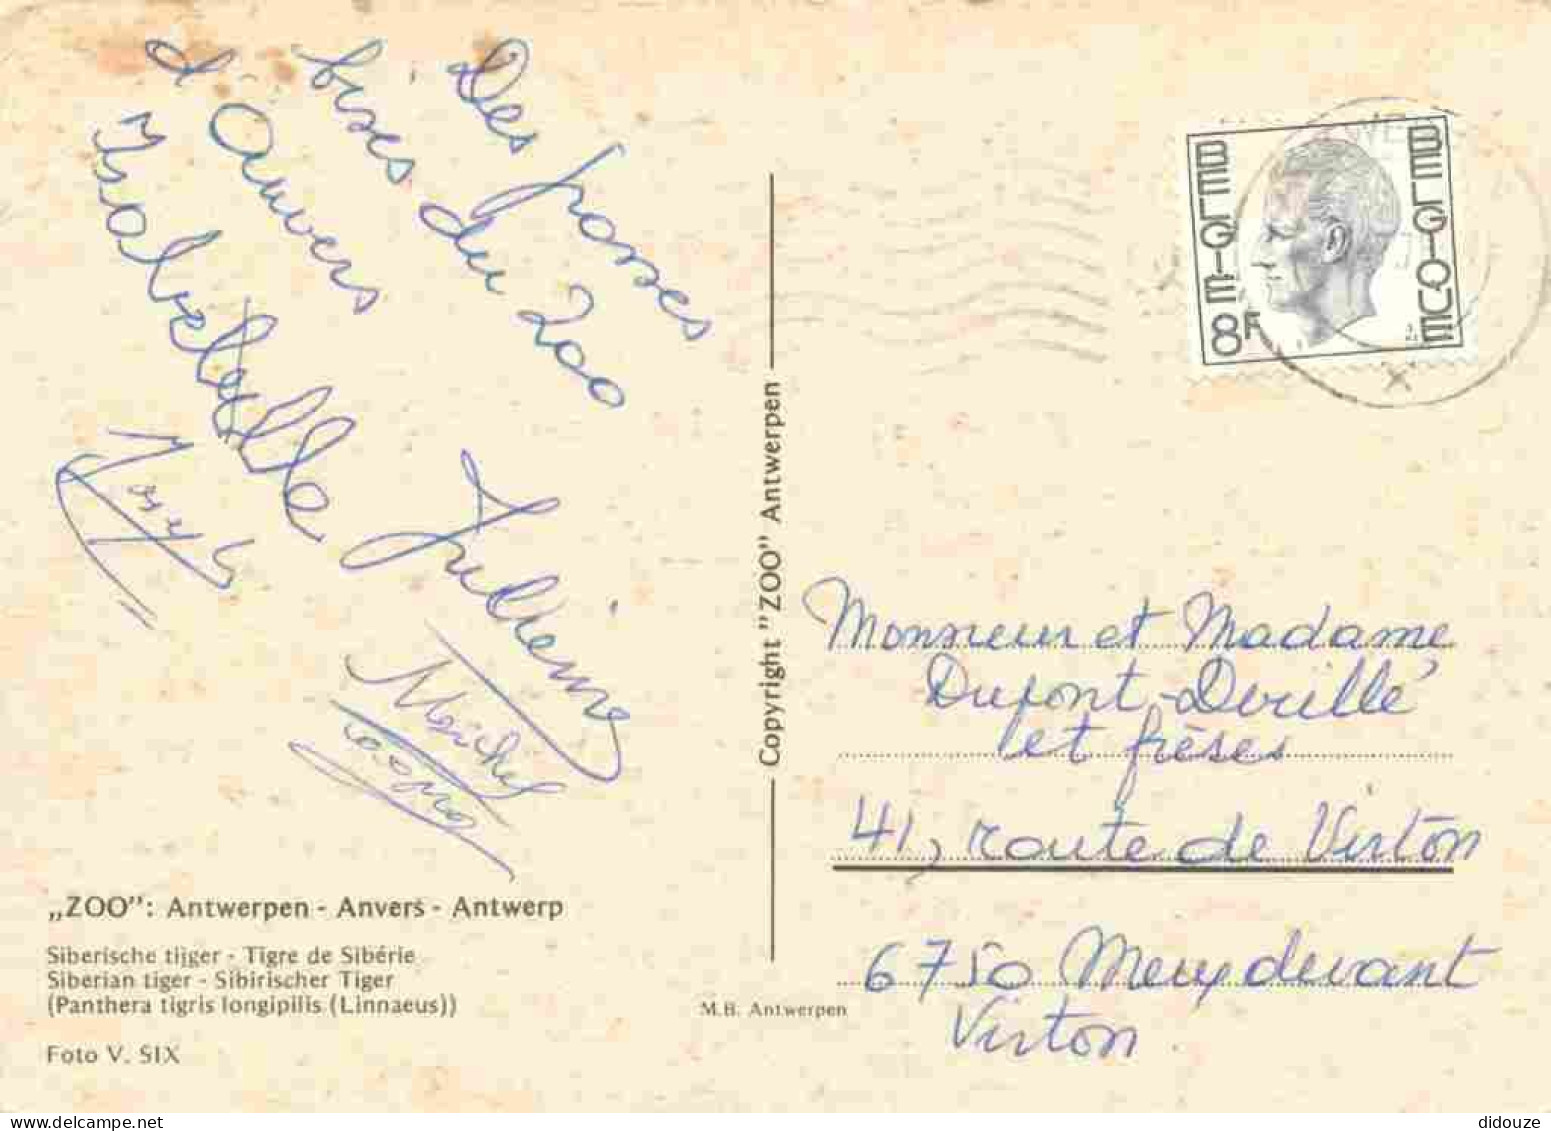 Des grosses
bises du Zoo
d'Anvers
Isabelle
Julienne
Joseph
Michel
„ZOO”: Antwerpen - Anvers - Antwerp
Siberische tijger - Tigre de Sibérie
Siberian tiger - Sibirischer Tiger
(Panthera tigris longipilis (Linnaeus))
Foto V. SIX
Copyright "ZOO" Antwerpen
M.B. Antwerpen
BELGIE BELGIQUE
8F
Monsieur et Madame
Dupont-Deville
et frères
41, route de Virton
6750 Meix devant
Virton
didouze